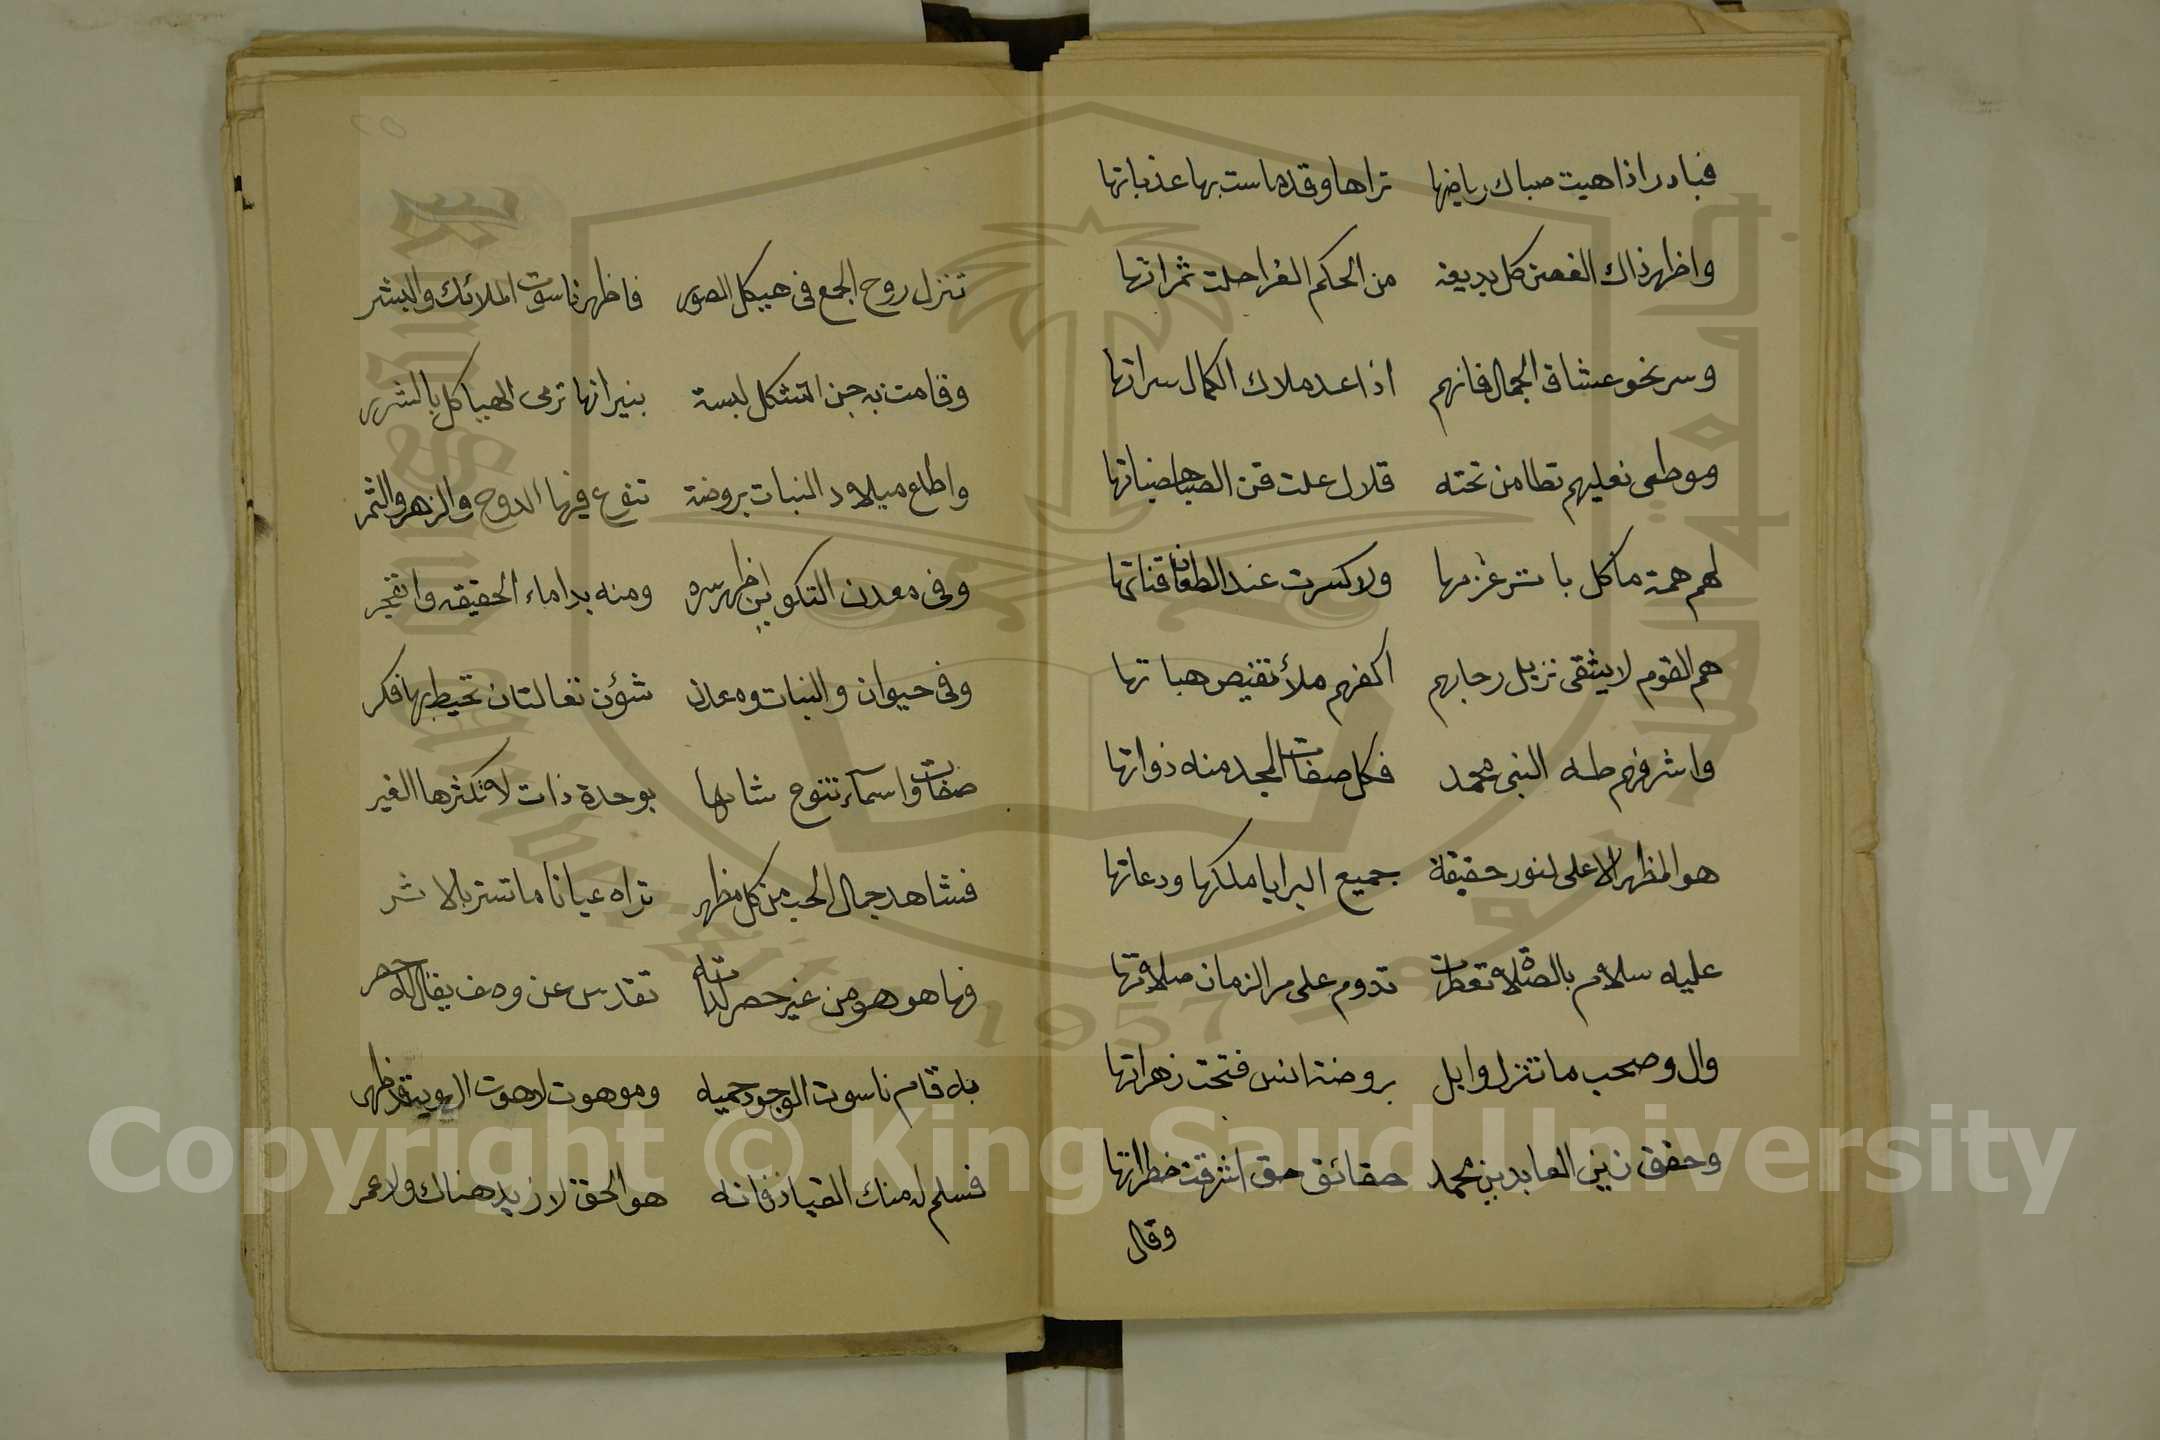 فبادر اذا هبت صباك رياضها تراها وقد ماست بها عذباتها
واظهر ذاك الغصن كل بديعة من الحكم الغرا حلت ثمراتها
وسر نحو عشاق الجمال فانهم اذا عد ملاك الكمال سراتها
وموطى نعليهم تطامن تحته قلال علت قنن
لهم همة ما كل باتر عزمها ولا كسرت عند الطعان قناتها
هم القوم لا يشقى نزيل رحابهم اكفهم ملأ تفيض هباتها
واشرفهم طه النبي محمد فكل صفات المجد منه ذواتها
هو المظهر الاعلى لنور حقيقة جميع البرايا ملكها ودعاتها
عليه سلام بالصلاة تعطرت تدوم على مر الزمان صلاتها
وال وصحب ما تنزل وابل بروضة انس فتحت زهراتها
وحقق زين العابدين محمد حقائق حق اشرقت خطراتها
وقال
٢٥
تنزل روح الجمع في هيكل الصور فاظهر ناسوت الملائك والبشر
وقامت به جن التشكل لبسة بنيرانها ترمى الهياكل بالشرر
واطلع ميلاد النبات بروضة تنوع فيها الدوح والزهر والثمر
وفي معدن التكوين اظهر سره ومنه بدا ماء الحقيقة وانفجر
وفي حيوان والنبات ومعدن شؤن تعالت ان تحيط بها فكر
صفات واسمآء تنوع شانها بوحدة ذات لا تكثرها الغير
فشاهد جمال الحب من كل مظهر تراه عيانا ما تستر بالاشر
فها هو هو من غير حصر لذاته تقدس عن وصف يقال له حصر
به قام ناسوت الوجود جميعه وموهوت لاهوت الهوية قد ظهر
فسلم له منك القياد فانه هو الحق لا زيد هناك ولا عمر
جامعة الملك سعود
King Saud University
1957
Copyright © King Saud University